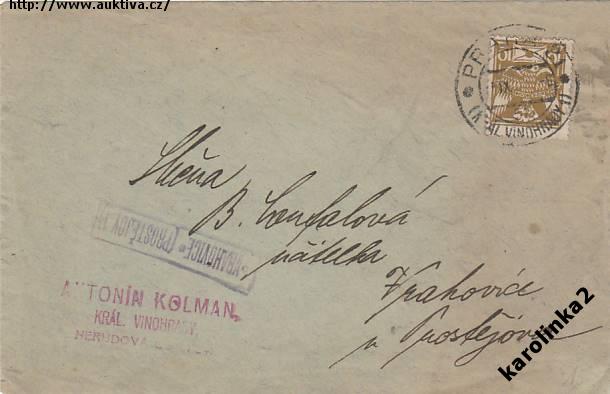 http://www.auktiva.cz/
PRAHA
(KRÁL. VINOHRADY)
Slečna
B. Coufalová
učitelka
Vrahovice
u Prostějova
VRAHOVICE (PROSTĚJOV
ANTONÍN KOLMAN,
KRÁL. VINOHRADY,
NERUDOVA
karolinka2